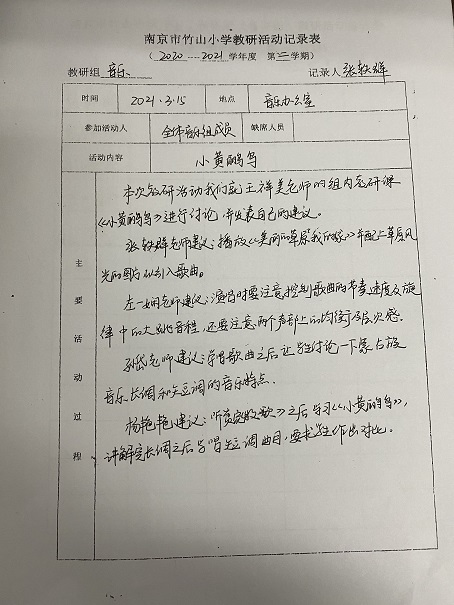 南京市竹山小学教研活动记录表
（2020---2021学年度 第二学期）
教研组 音乐 记录人 张轶群
时间 2021.3.15 地点 音乐办公室
参加活动人 全体音乐组成员 缺席人员
活动内容 小黄鹂鸟
主要活动过程
本次教研活动我们就王祥美老师的组内教研课
《小黄鹂鸟》进行讨论，并发表自己的建议。
张轶群老师建议：播放《美丽的草原我的家》并配上草原风
光的图片以引入歌曲。
左一娴老师建议：演唱时要注意控制歌曲的节奏速度及旋
律中的大跳音程，还要注意两个声部上的均衡及层次感。
老师建议：学唱歌曲之后让学生讨论一下蒙古族
音乐长调和短调的音乐特点。
杨艳艳建议：听赏《牧歌》之后学习《小黄鹂鸟》，
讲解完长调之后学唱短调曲目，要求学生作出对比。